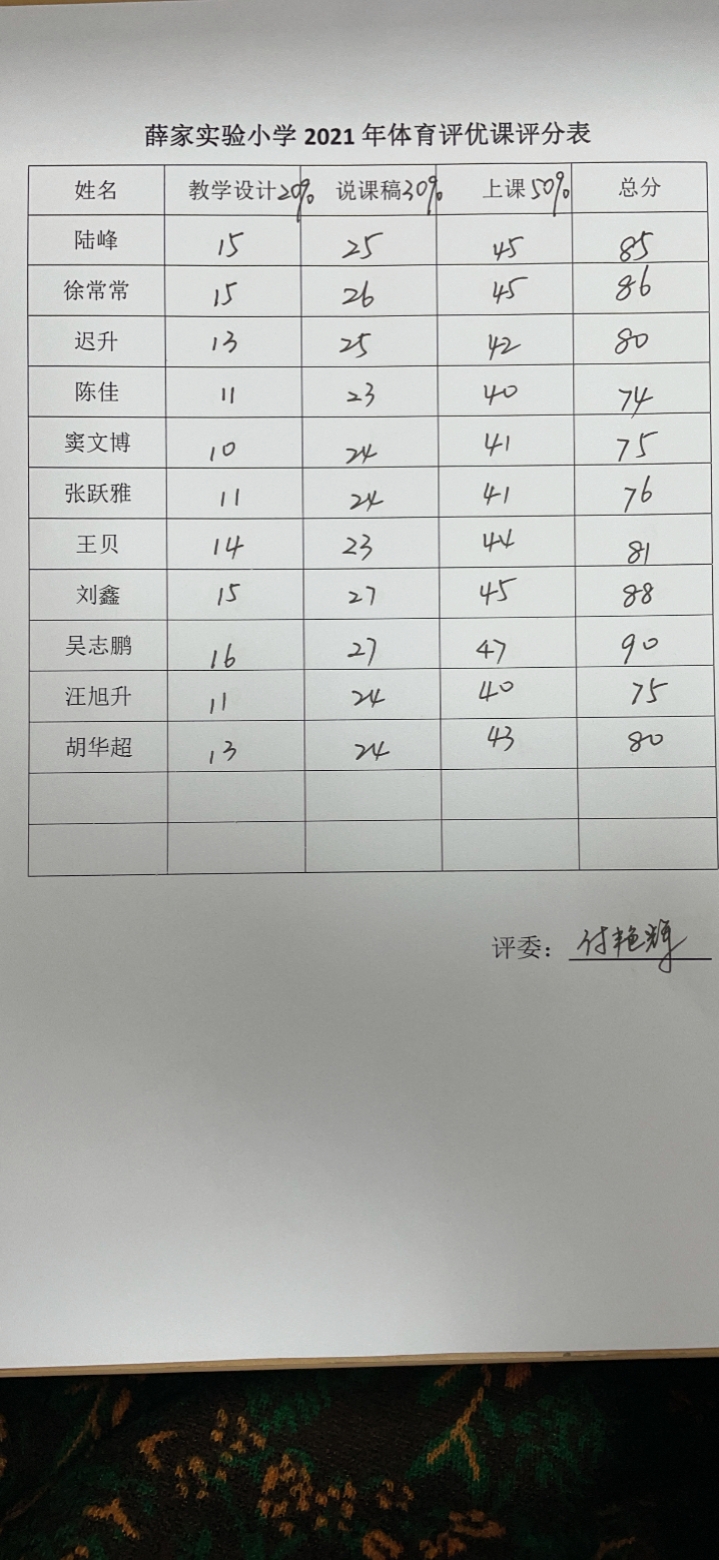 薛家实验小学 2021 年体育评优课评分表
姓名 教学设计20% 说课稿30% 上课50% 总分
陆峰 15 25 45 85
徐常常 15 26 45 86
迟升 13 25 42 80
陈佳 11 23 40 74
窦文博 10 24 41 75
张跃雅 11 24 41 76
王贝 14 23 44 81
刘鑫 15 27 45 88
吴志鹏 16 27 47 90
汪旭升 11 24 40 75
胡华超 13 24 43 80
评委：付艳辉